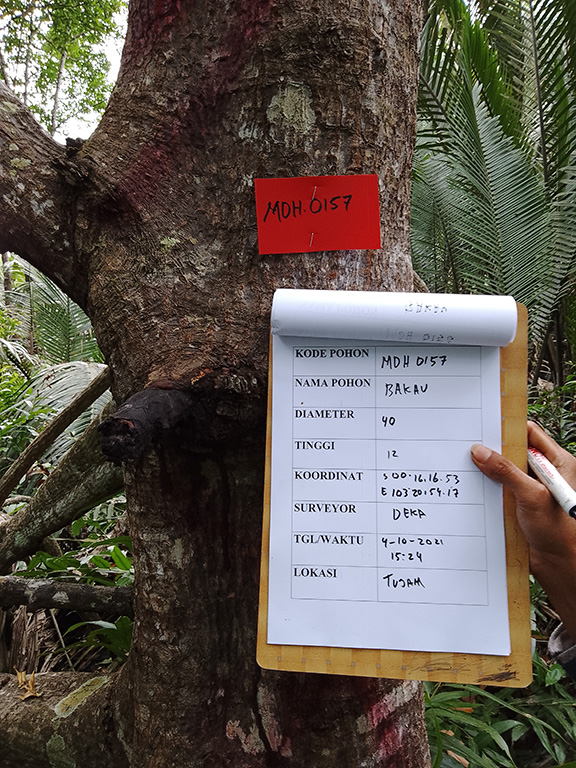 MDH.0157
KODE POHON MDH 0157
NAMA POHON BAKAU
DIAMETER 40
TINGGI 12
KOORDINAT S 00.16.16.53
E 103°20.54.17
SURVEYOR DEKA
TGL/WAKTU 4-10-2021
15:24
LOKASI TUJAM